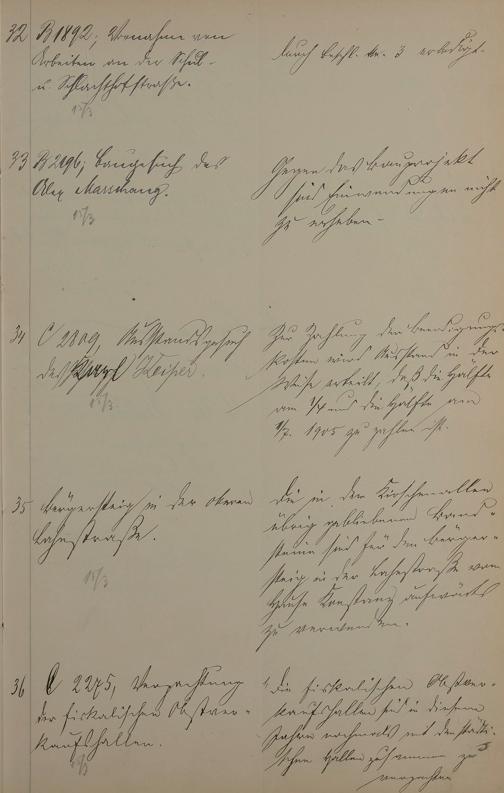 32 B 1892; Vornahme von
Arbeiten an der Schul-
u. Schlachthofstraße.
15/3
durch Beschl. Nr. 3 erledigt.
33 B 2196; Baugesuch des
Alex Marschang.
15/3
Gegen das Bauprojekt
sind Einwendungen nicht
zu erheben.
34 C 2809, Ausstandsgesuch
des Keiper.
15/3
Zur Zahlung der
kosten wird Ausstand in der
Weise erteilt, daß die Hälfte
am 1/4 und die Hälfte am
1/7. 1905 zu zahlen ist.
35 Bürgersteig in der oberen
straße.
15/3
Die in den Kirschenallee
übrig gebliebenen Rand-
steine sind für den Bürger-
steig in der straße vom
Hause Konstanz aufwärts
zu verwenden.
36 C 2275, Verpachtung
der fiskalischen Obstver-
kaufshallen.
15/3
Die fiskalischen Obstver-
kaufshallen sind in diesem
Jahre nochmals mit den städti-
schen Hallen zusammen zu
verpachten